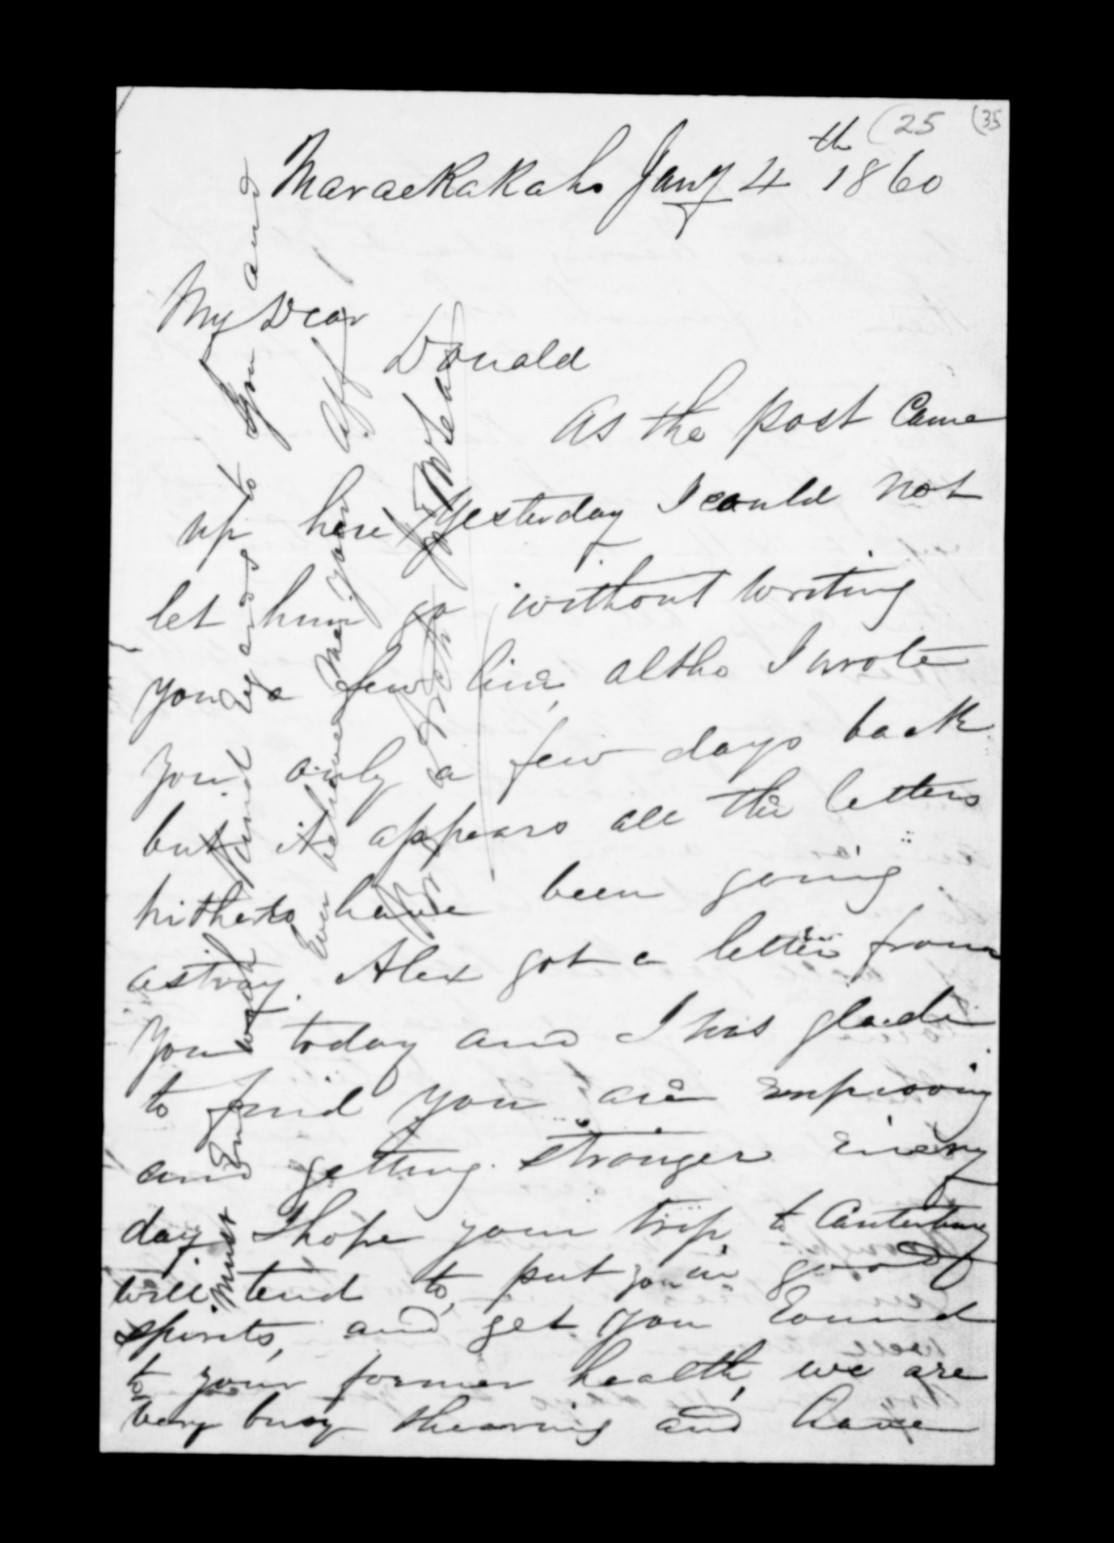 (25 (35
Maraekakaho Jany 4th 1860
My Dear
Donald
As the post Came
up here Yesterday I could not
let him go without writing
you a few line, altho I wrote
you only a few days back
but it appears all the letters
hitherto have been going
astray. Alex got a letter from
you today and I was glad
to find you are improving
and getting stronger every
day I hope your trip to Canterbury
will tend to put you in good
spirits, and get you round
to your former health, we are
very busy shearing and have
must End with kind regards to you and
Ever believe me your aff
Brother
McLean